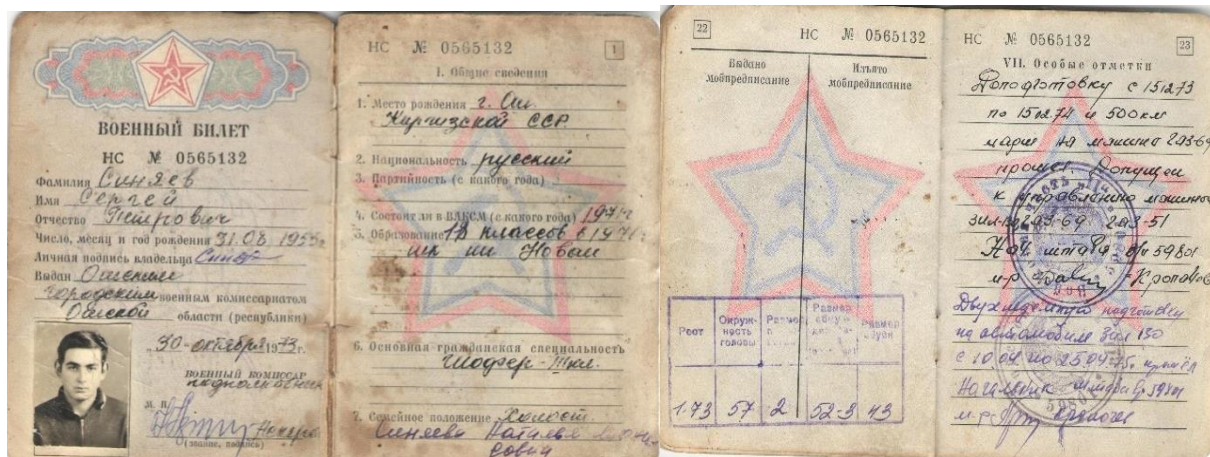 ВОЕННЫЙ БИЛЕТ
НС № 0565132
Фамилия Синяев
Имя Сергей
Отчество Петрович
Число, месяц и год рождения 31.08.1955г
Личная подпись владельца
Выдан Ошским
городским военным комиссариатом
Ошской области (республики)
„30“ октября 1973 г.
ВОЕННЫЙ КОМИССАР
подполковник
М. П.
(звание, подпись)
НС № 0565132
1
I. Общие сведения
1. Место рождения г. Ош
Киргизской ССР.
2. Национальность русский
3. Партийность (с какого года)
4. Состоял ли в ВЛКСМ (с какого года) 1971г
5. Образование 10 классов в
шк им Навои
6. Основная гражданская специальность
Шофер-
7. Семейное положение Холост.
Синяева Наталья
22
НС № 0565132
Выдано мобпредписание
Изъято мобпредписание
Рост
Окруж-ность головы
Размер
Размер
Размер обуви
1-73
57
2
52-3
43
НС № 0565132
23
VII. Особые отметки
Доподготовку с 151273
по 150274 и 500км
марш на машине
прошел. Допущен
к управлению машиной
Нач штаба в/ч 59801
м-р
Двухнедельную подготовку
на автомобиле Зил 130
с 10.04 по 25.04.75г. прошёл
Начальник штаба в/ч 59801
м-р